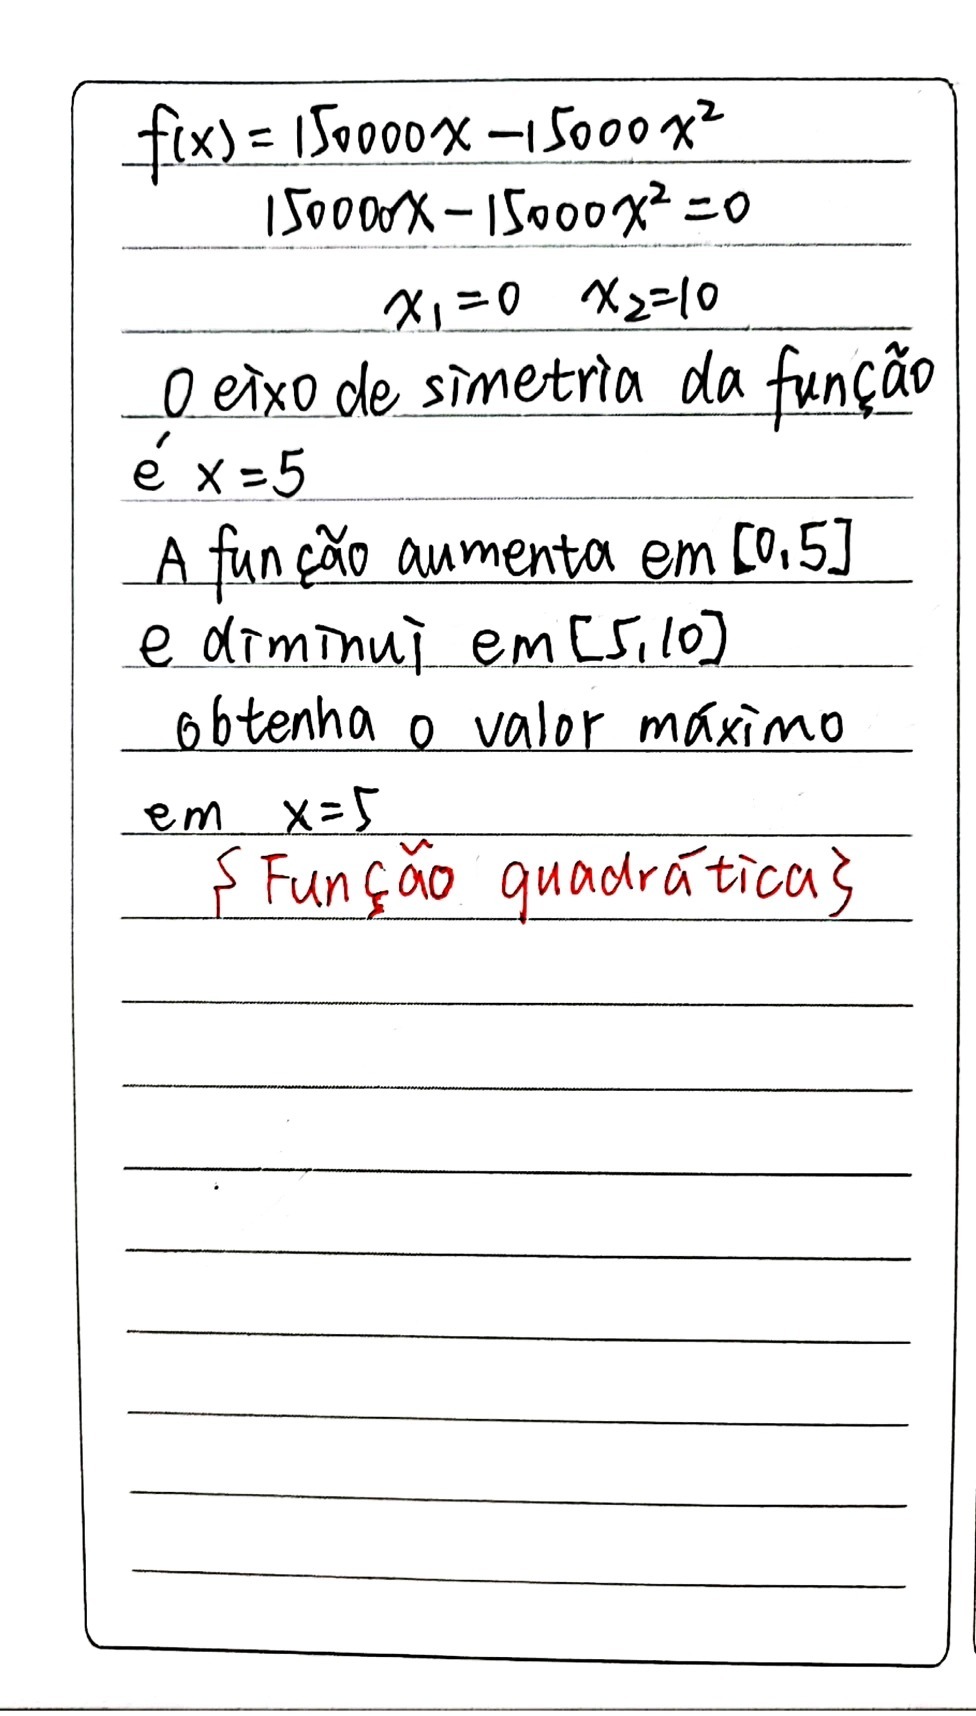 f(x) = 150000x - 15000x²
150000x - 15000x² = 0
x₁ = 0 x₂ = 10
O eixo de simetria da função
é x = 5
A função aumenta em [0,5]
e diminui em [5,10]
obtenha o valor máximo
em x = 5
{Função quadrática}